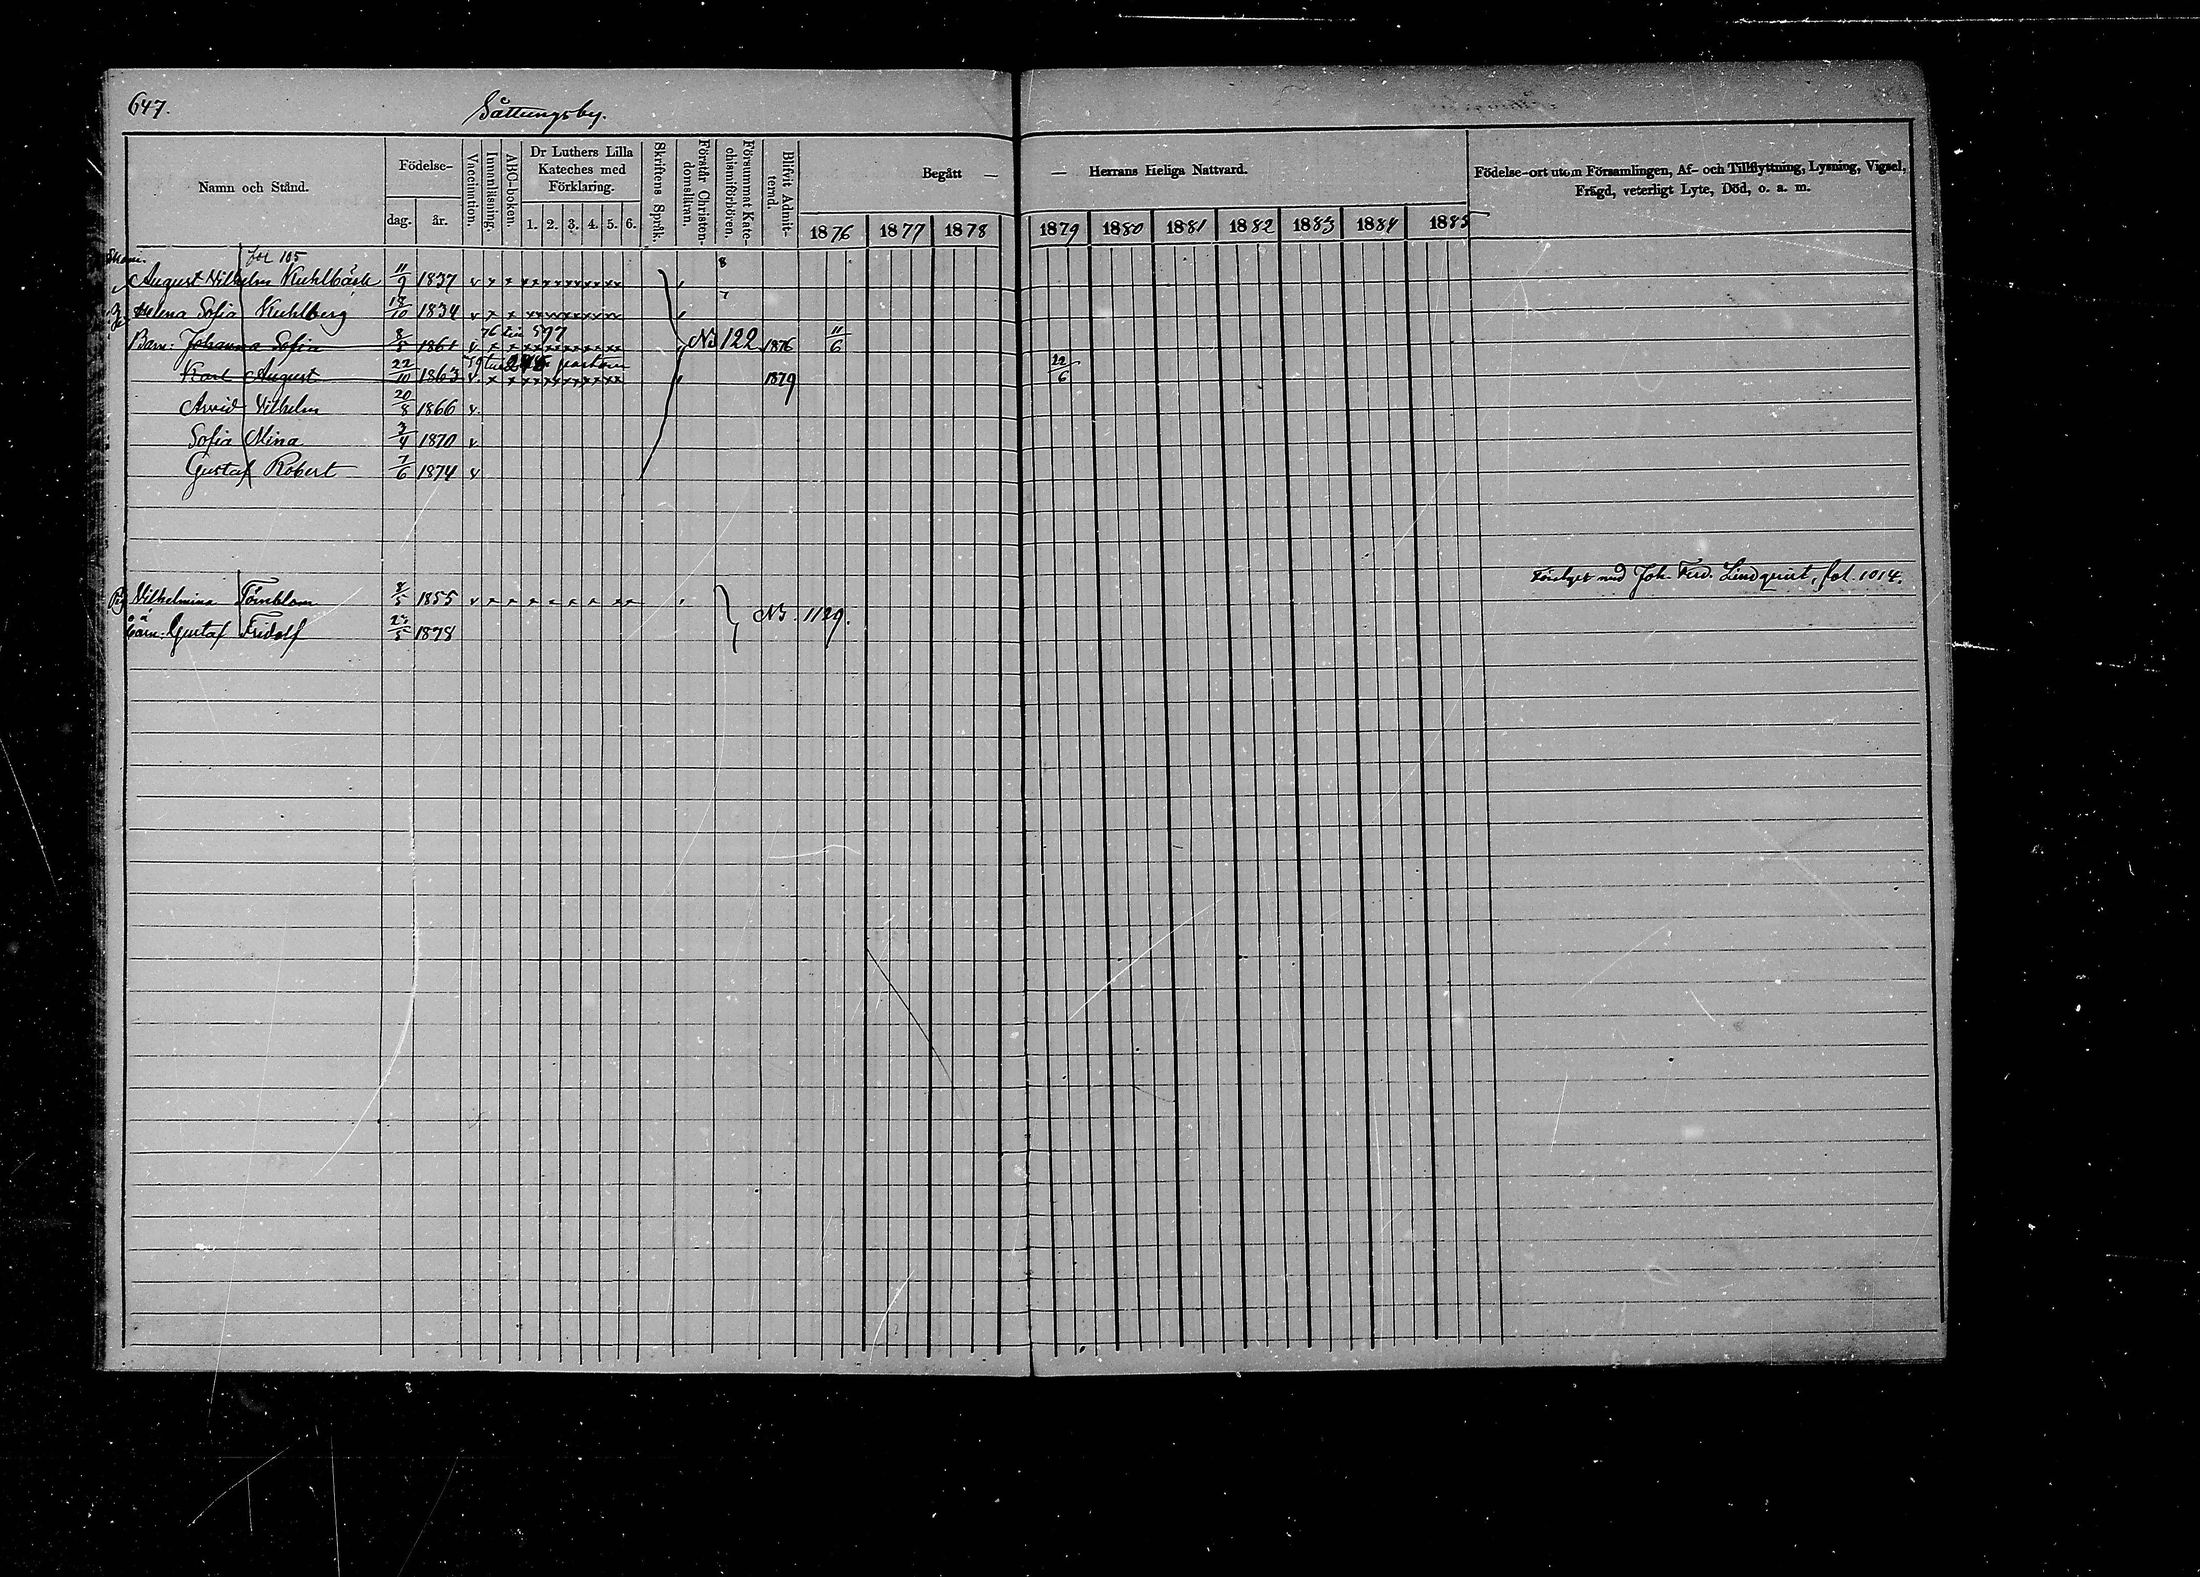 647.
Såttungsby.
Namn och Stånd.
Födelse-
dag. år.
Vaccination.
Innanläsning.
ABC-boken.
Dr Luthers Lilla Kateches med Förklaring.
1. 2. 3. 4. 5. 6.
Skriftens Språk.
Förstår Christendomsläran.
Försummat Katechismiförhören.
Blifvit Admitterad.
Begått —
— Herrans Heliga Nattvard.
1876 1877 1878 1879 1880 1881 1882 1883 1884 1885
Födelse-ort utom Församlingen, Af- och Tillflyttning, Lysning, Vigsel,
Frägd, veterligt Lyte, Död, o. a. m.
fol 105
August Vilhelm Kuhlbäck 11/9 1837 v x x x x x x x x 8
Helena Sofia Kuhlberg 18/10 1834 v x x x x x x x x 7
76 till 597
Barn: Johanna Sofia 8/5 1861 v x x x x x x x x No 122 1876 11/6
79
Karl August 22/10 1863 v x x x x x x x x 1879 22/6
Arvid Vilhelm 20/8 1866 v.
Sofia Mina 3/4 1870 v
Gustaf Robert 7/6 1874 v
med Joh. Ferd. Lindqvist, fol. 1014.
Pig. Vilhelmina Törnblom 8/5 1855 v x x x x x x x x No. 1129.
Gustaf Fridolf 23/5 1878